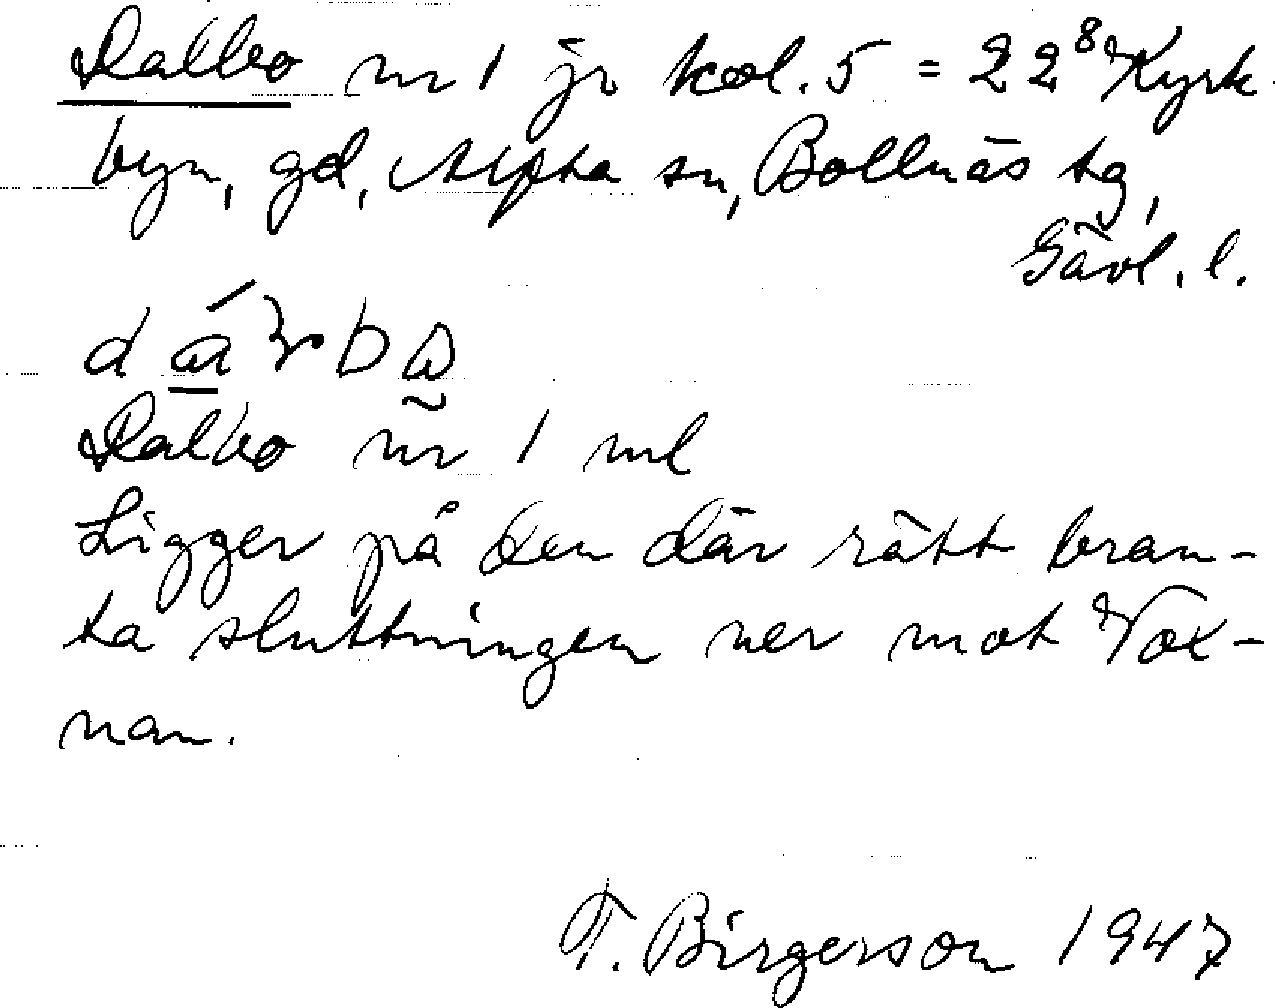 Dalbo nr 1 jr kol. 5 = 22⁸ Kyrk
byn, gd, Alfta sn, Bollnäs tg,
Gävl. l.
Dalbo nr 1 ml
Ligger på den där rätt bran-
ta sluttningen ner mot Vox-
nan.
T. Birgerson 1947